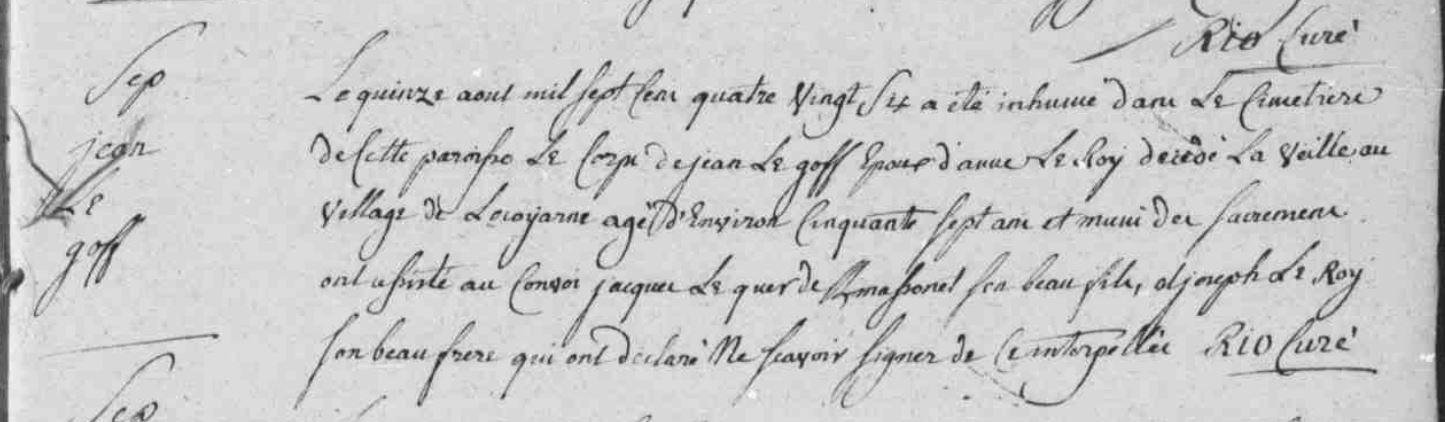 RIO Curé
Sep
jean
Le
goff
Le quinze aout mil sept Cens quatre Vingt Six a été inhumé dans Le Cimetiere
de Cette paroisse Le Corps de jean Le goff Epoux d'anne Le Roy decédé La Veille au
Village de agé d'Environ Cinquante sept ans et muni des sacremens
ont assisté au Convoi jacques Le quer de son beau fils, et joseph Le Roy
son beau frere qui ont declaré Ne scavoir signer de Ce interpellés RIO Curé
Sep